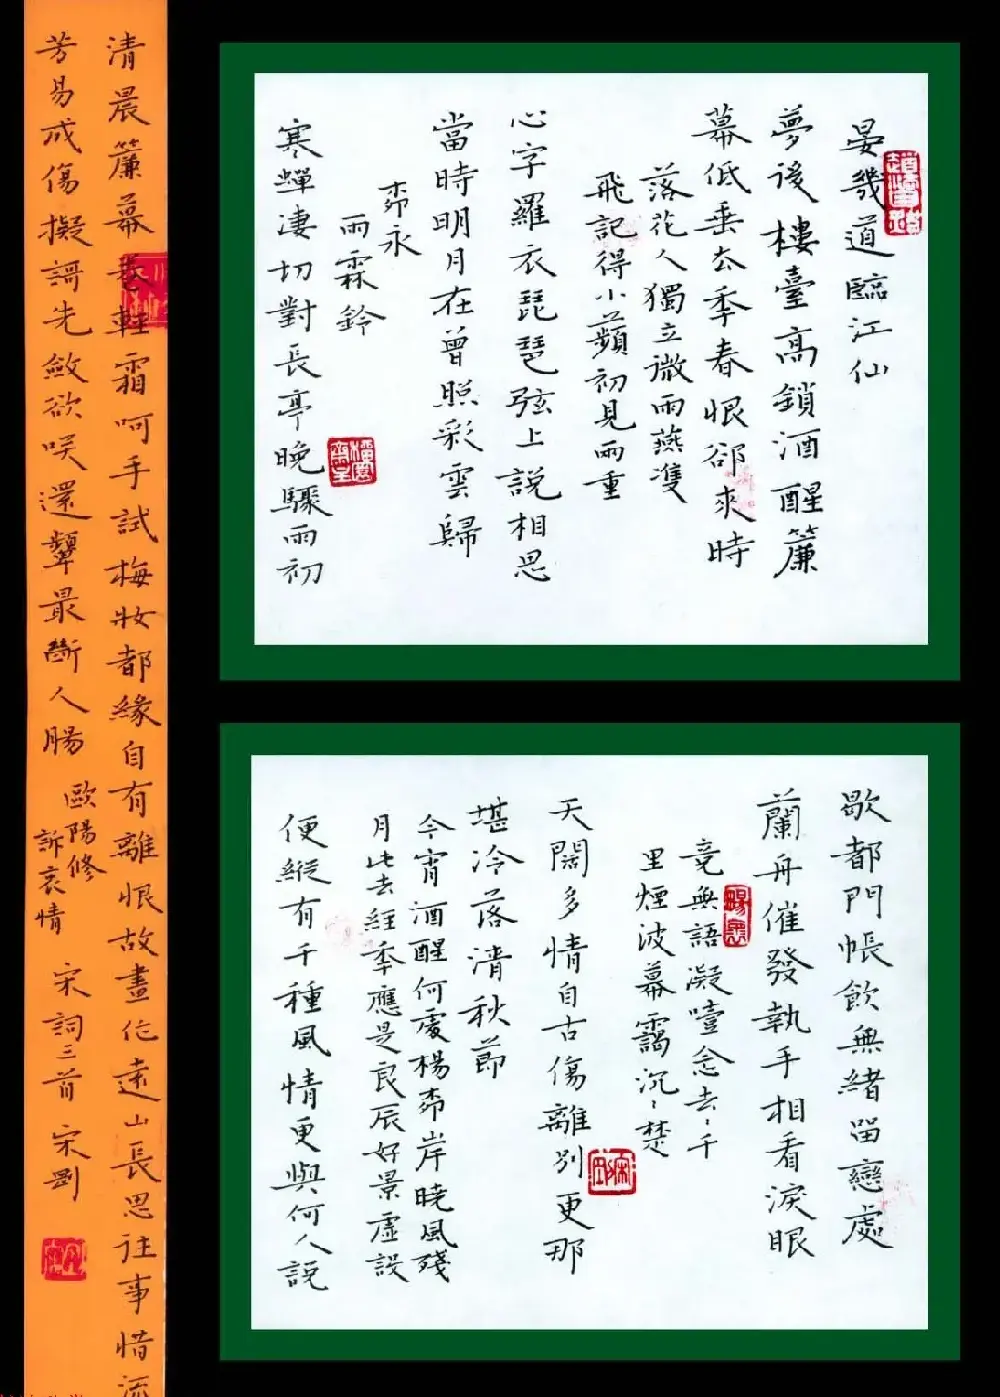 晏幾道臨江仙
夢後樓臺高鎖酒醒簾
幕低垂去年春恨卻來時
落花人獨立微雨燕雙
飛記得小蘋初見兩重
心字羅衣琵琶弦上說相思
當時明月在曾照彩雲歸
柳永
雨霖鈴
寒蟬淒切對長亭晚驟雨初
歇都門帳飲無緒留戀處
蘭舟催發執手相看淚眼
竟無語凝噎念去〻千
里煙波暮靄沉〻楚
天闊多情自古傷離別更那
堪冷落清秋節
今宵酒醒何處楊柳岸曉風殘
月此去經年應是良辰好景虛設
便縱有千種風情更與何人說
清晨簾幕卷輕霜呵手試梅妝都緣自有離恨故畫作遠山長思往事惜流
芳易成傷擬歌先斂欲笑還顰最斷人腸
歐陽修
訴衷情
宋詞三首 宋剛